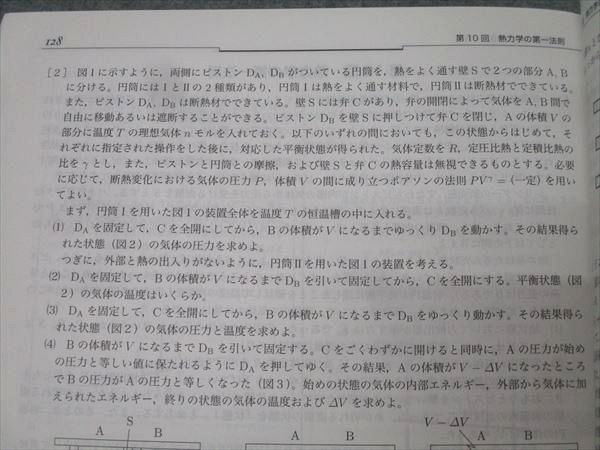 128
第10回 熱力学の第一法則
[2] 図1に示すように，両側にピストン DA，DB がついている円筒を，熱をよく通す壁 S で2つの部分 A, B
に分ける。円筒には I と II の2種類があり，円筒 I は熱をよく通す材料で，円筒 II は断熱材でできている。
また，ピストン DA，DB は断熱材でできている。壁 S には弁 C があり，弁の開閉によって気体を A, B 間で
自由に移動あるいは遮断することができる。ピストン DB を壁 S に押しつけて弁 C を閉じ，A の体積 V の
部分に温度 T の理想気体 n モルを入れておく。以下のいずれの問においても，この状態からはじめて，そ
れぞれに指定された操作をした後に，対応した平衡状態が得られた。気体定数を R，定圧比熱と定積比熱の
比を γ とし，また，ピストンと円筒との摩擦，および壁 S と弁 C の熱容量は無視できるものとする。必要
に応じて，断熱変化における気体の圧力 P，体積 V の間に成り立つポアソンの法則 PV^γ = (一定) を用い
てよい。
まず，円筒 I を用いた図1の装置全体を温度 T の恒温槽の中に入れる。
(1) DA を固定して，C を全開にしてから，B の体積が V になるまでゆっくり DB を動かす。その結果得ら
れた状態（図2）の気体の圧力を求めよ。
つぎに，外部と熱の出入りがないように，円筒 II を用いた図1の装置を考える。
(2) DA を固定して，B の体積が V になるまで DB を引いて固定してから，C を全開にする。平衡状態（図
2）の気体の温度はいくらか。
(3) DA を固定して，C を全開にしてから，B の体積が V になるまで DB をゆっくり動かす。その結果得ら
れた状態（図2）の気体の圧力と温度を求めよ。
(4) B の体積が V になるまで DB を引いて固定する。C をごくわずかに開けると同時に，A の圧力が始め
の圧力と等しい値に保たれるように DA を押してゆく。その結果，A の体積が V − ΔV になったところ
で B の圧力が A の圧力と等しくなった（図3）。始めの状態の気体の内部エネルギー，外部から気体に加
えられたエネルギー，終りの状態の気体の温度および ΔV を求めよ。
S
V − ΔV
A B
A B
A B